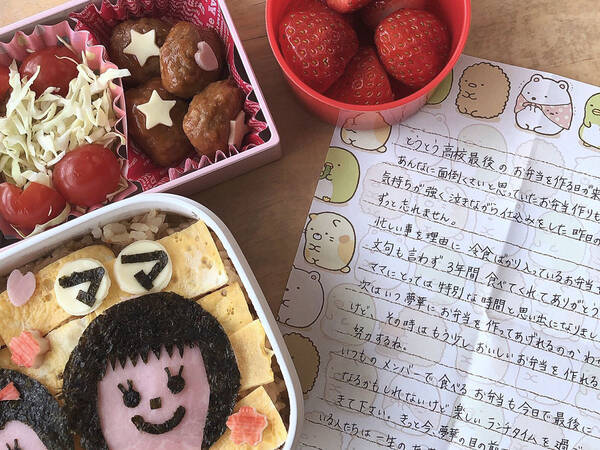 ママ
とうとう高校最後のお弁当を作る日が来
あんなに面倒くさいと思っていたお弁当作りも
気持ちが強く泣きながら仕込みをした昨日の
ずっと忘れません。
忙しい事を理由に冷食ばかり入っているお弁当
文句も言わず3年間食べてくれてありがとう
ママにとっては特別な時間と思い出になりまし
次はいつ夢華にお弁当を作ってあげれるのかわ
けど、その時はもう少しおいしいお弁当を作れる
努力するね。
いつものメンバーで食べるお弁当も今日で最後に
なるかもしれないけど楽しいランチタイムを過ご
きて下さい。きっと今、夢華の目の前
いる人たちは一生の